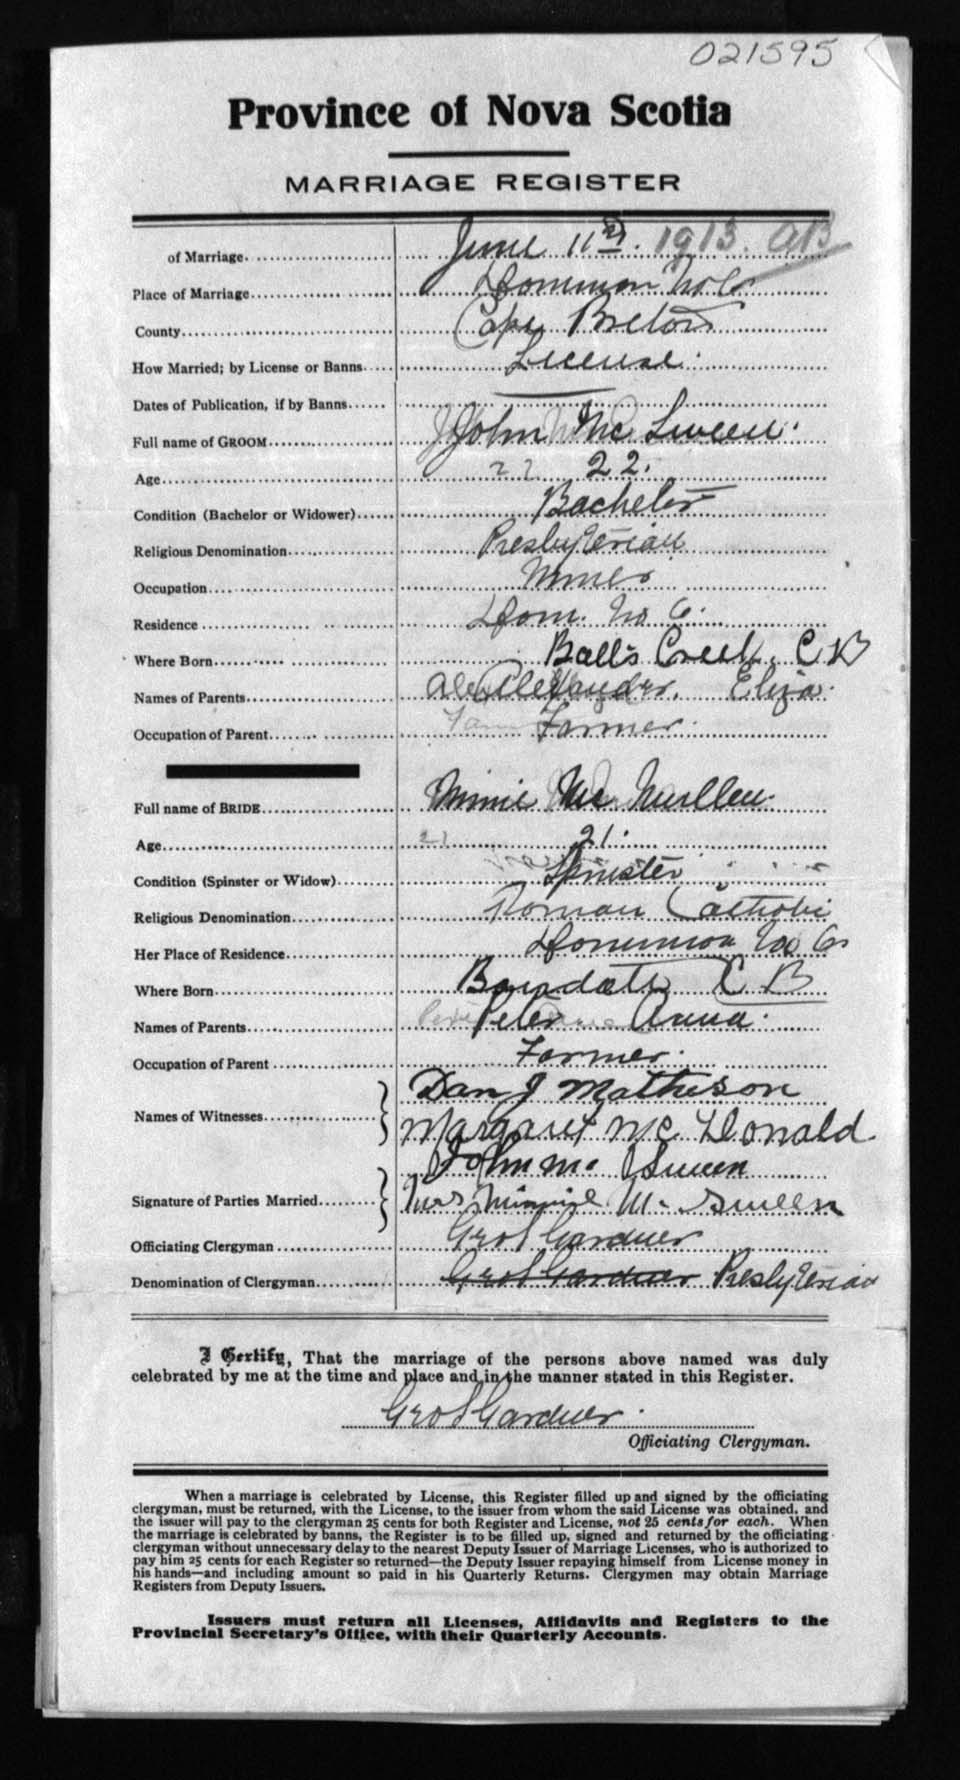 021595
Province of Nova Scotia
MARRIAGE REGISTER
of Marriage June 11th. 1913. AB
Place of Marriage Dominion No 6
County Cape Breton
How Married; by License or Banns License.
Dates of Publication, if by Banns
Full name of GROOM John Mc Sween.
Age 22 22.
Condition (Bachelor or Widower) Bachelor
Religious Denomination Presbyterian
Occupation Miner
Residence Dom. No 6.
Where Born Balls Creek, C B
Names of Parents Alex Alexander. Eliza.
Occupation of Parent Farmer.
Full name of BRIDE Minie Mc Mullen.
Age 21 21.
Condition (Spinster or Widow) Spinster
Religious Denomination Roman Catholic
Her Place of Residence Dominion No 6
Where Born C B
Names of Parents Peter Anna.
Occupation of Parent Farmer.
Names of Witnesses Dan J Matheson
Margaret Mc Donald
Signature of Parties Married John Mc Sween
Mrs Minnie Mc Sween
Officiating Clergyman Geo S Gardner
Denomination of Clergyman Geo S Gardner Presbyterian
I Certify, That the marriage of the persons above named was duly
celebrated by me at the time and place and in the manner stated in this Register.
Geo S Gardner.
Officiating Clergyman.
When a marriage is celebrated by License, this Register filled up and signed by the officiating
clergyman, must be returned, with the License, to the issuer from whom the said License was obtained, and
the issuer will pay to the clergyman 25 cents for both Register and License, not 25 cents for each. When
the marriage is celebrated by banns, the Register is to be filled up, signed and returned by the officiating
clergyman without unnecessary delay to the nearest Deputy Issuer of Marriage Licenses, who is authorized to
pay him 25 cents for each Register so returned—the Deputy Issuer repaying himself from License money in
his hands—and including amount so paid in his Quarterly Returns. Clergymen may obtain Marriage
Registers from Deputy Issuers.
Issuers must return all Licenses, Affidavits and Registers to the
Provincial Secretary's Office, with their Quarterly Accounts.